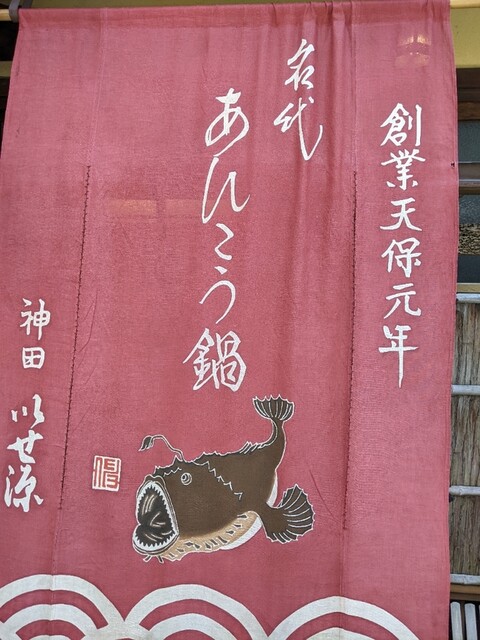 創業天保元年
名代
あんこう鍋
神田
いせ源